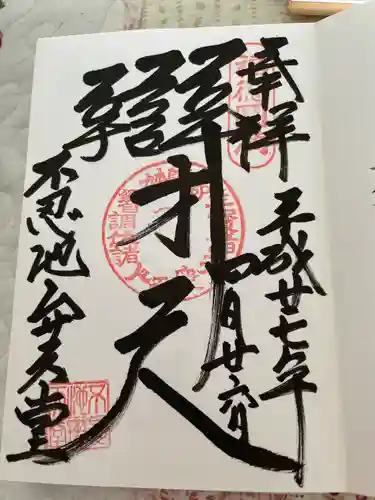 奉拝
平成廿七年
四月廿六日
辯才天
不忍池弁天堂